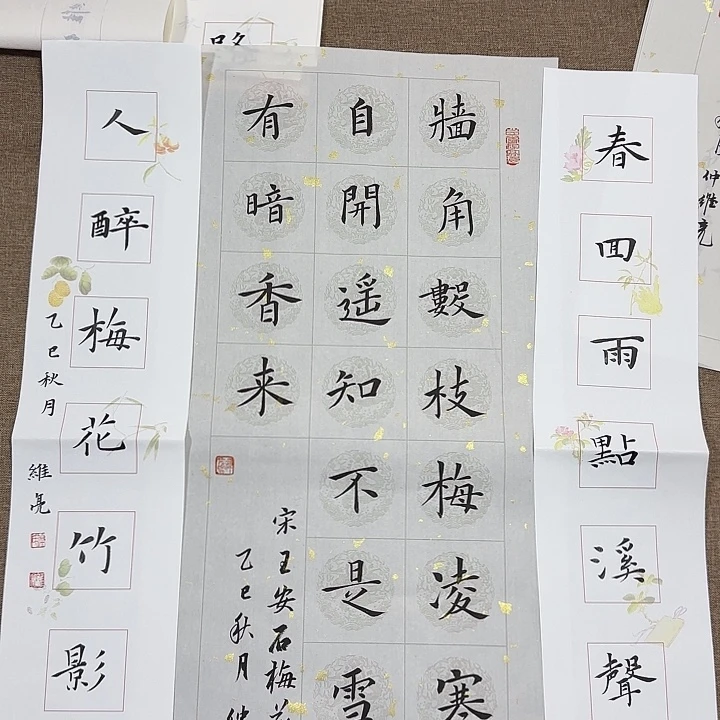 仲維亮
春囬雨點溪聲
牆角數枝梅凌寒
自開遥知不是雪
有暗香来
宋王安石梅花
乙巳秋月仲
人醉梅花竹影
乙巳秋月
維亮